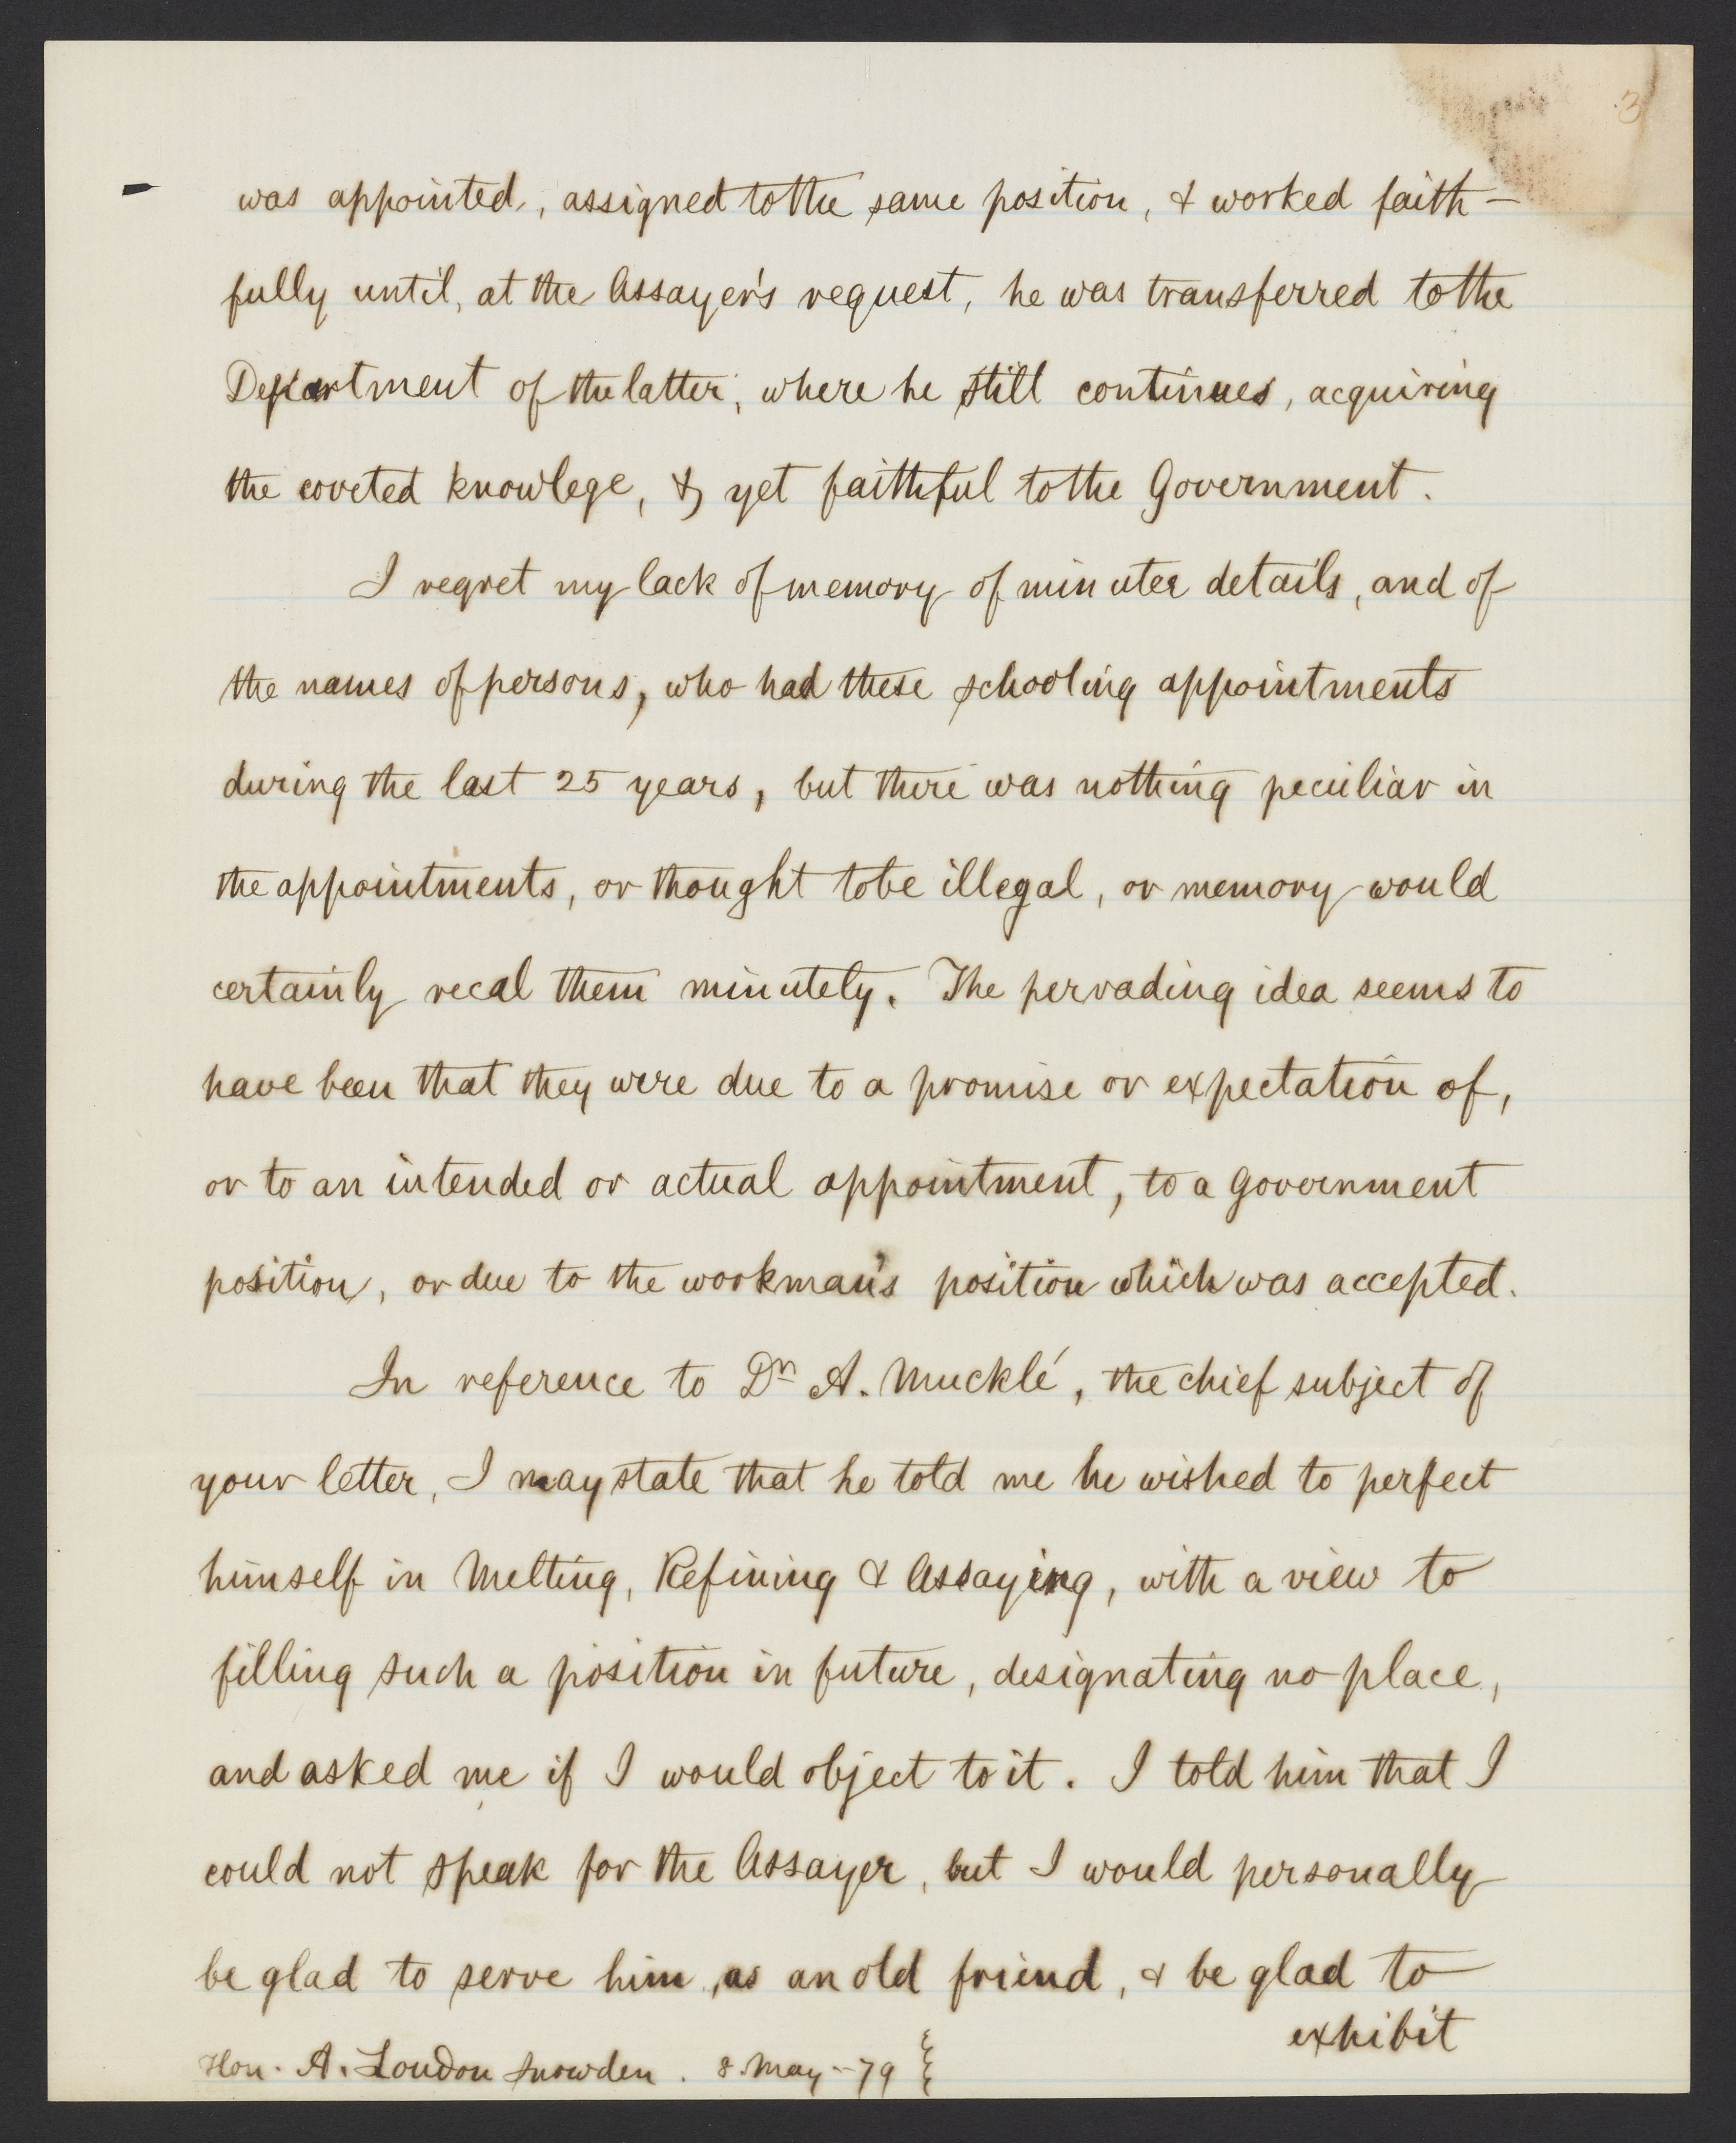 3
was appointed, assigned to the same position, & worked faith-
fully until, at the Assayer's request, he was transferred to the
Department of the latter, where he still continues, acquiring
the coveted knowlege, & yet faithful to the Government.
I regret my lack of memory of minuter details, and of
the names of persons, who had these schooling appointments
during the last 25 years, but there was nothing peculiar in
the appointments, or thought to be illegal, or memory would
certainly recal them minutely. The pervading idea seems to
have been that they were due to a promise or expectation of,
or to an intended or actual appointment, to a Government
position, or due to the workman's position which was accepted.
In reference to Dr A. Mucklé, the chief subject of
your letter, I may state that he told me he wished to perfect
himself in Melting, Refining & Assaying, with a view to
filling such a position in future, designating no place,
and asked me if I would object to it. I told him that I
could not speak for the Assayer, but I would personally
be glad to serve him, as an old friend, & be glad to
exhibit
Hon. A. Loudon Snowden. 8. May -79